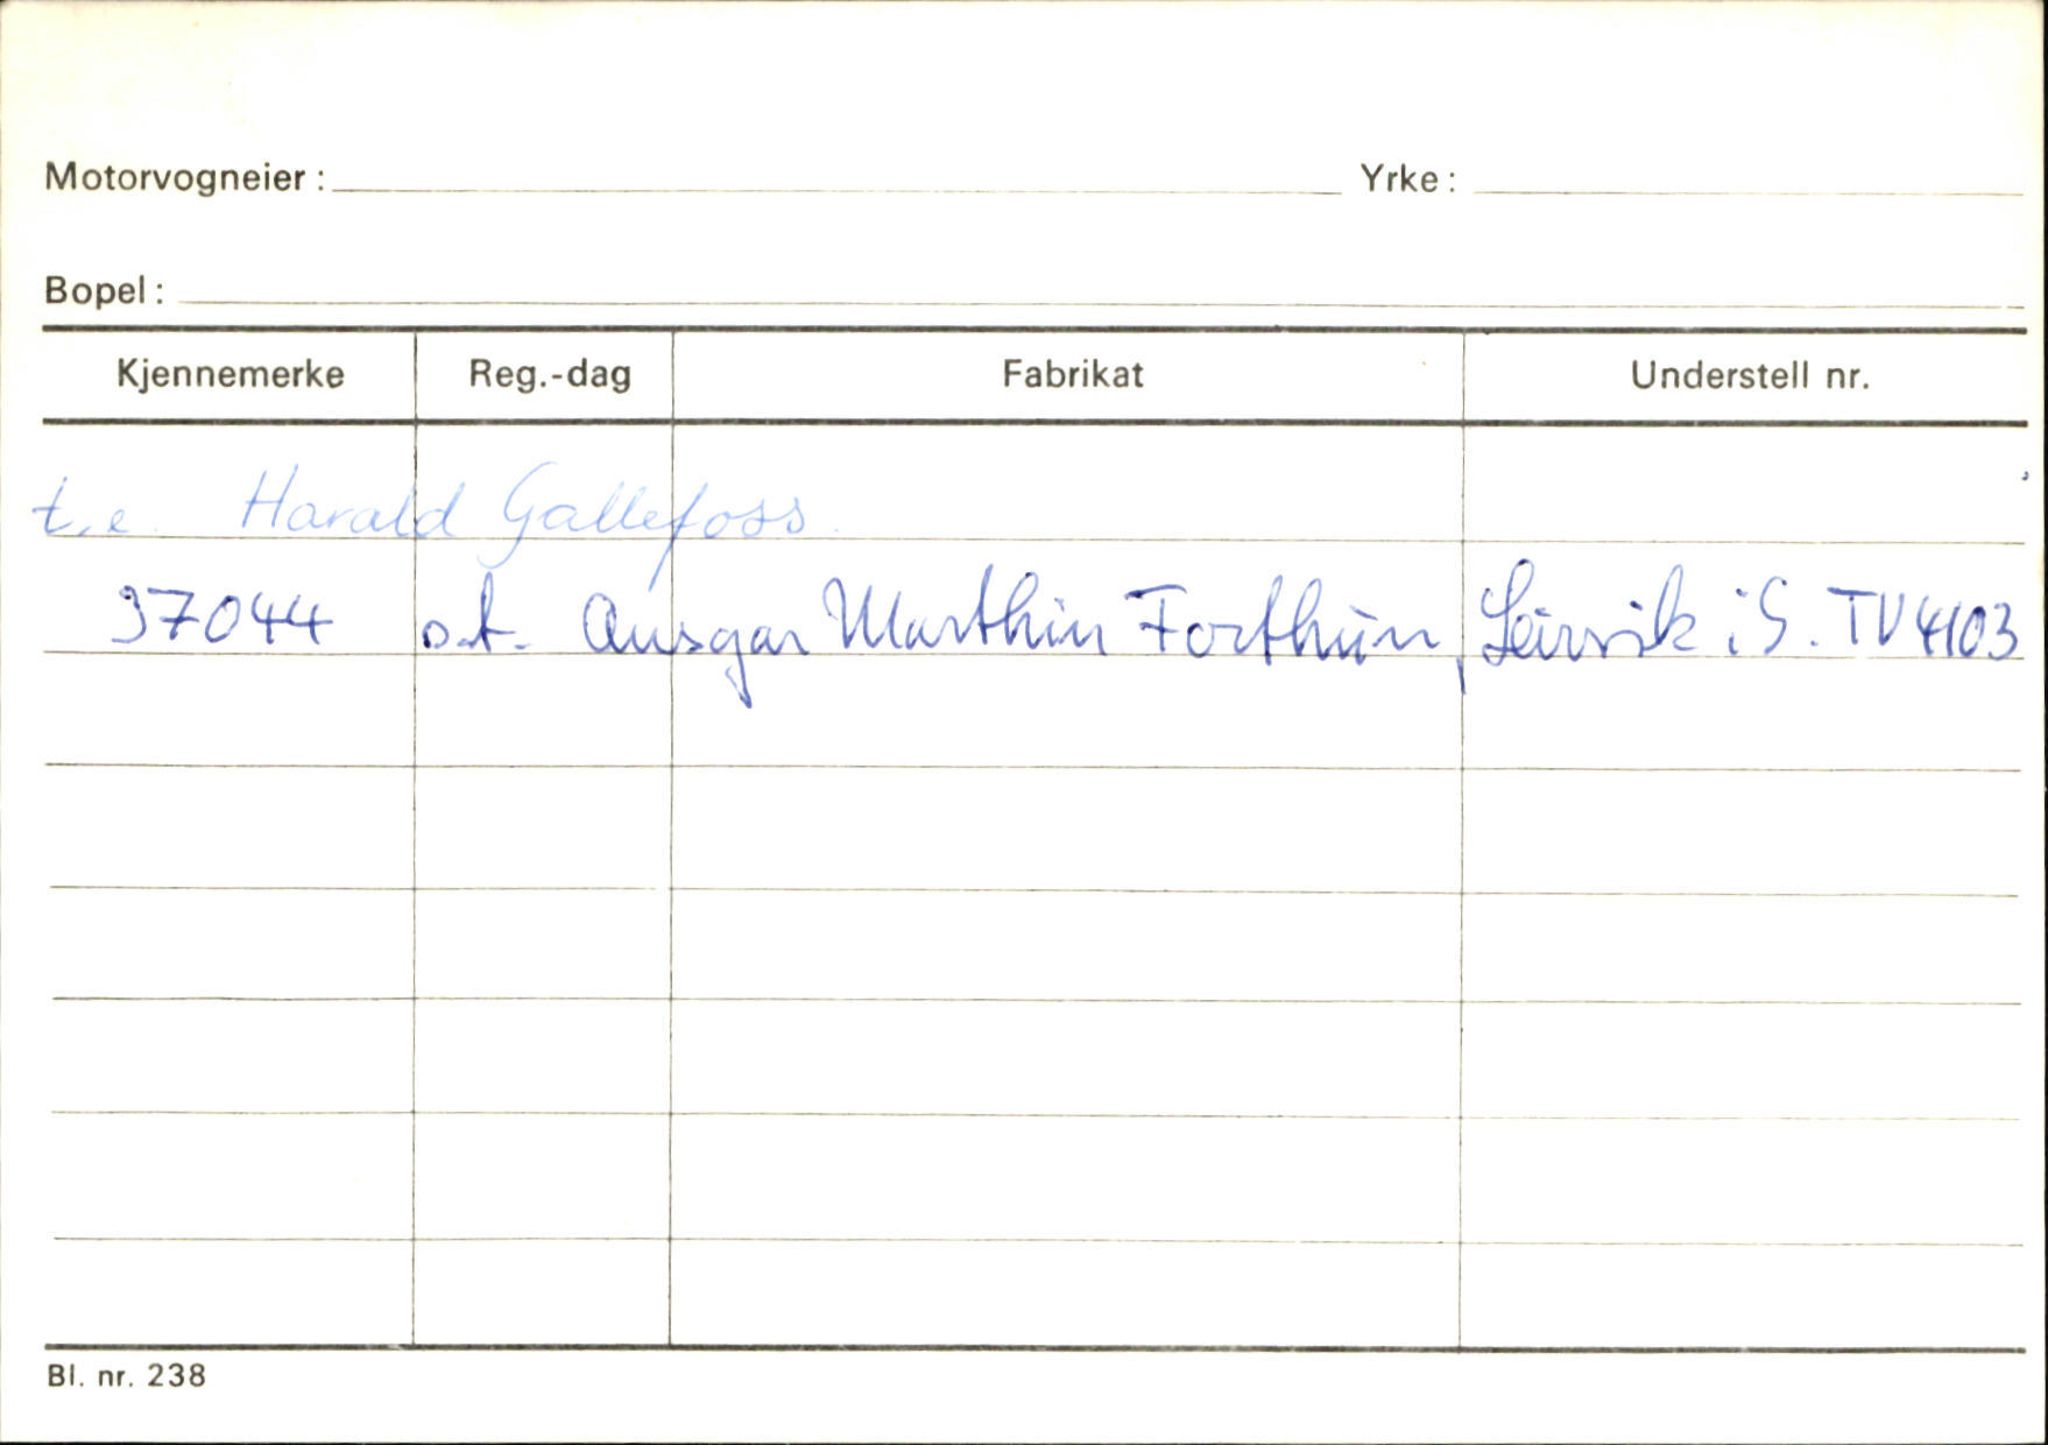 Motorvogneier: Yrke:
Bopel:
Kjennemerke Reg.-dag Fabrikat Understell nr.
t.e. Harald Gallefoss
37044 o.t. Ansgar Marthin Forthun, Leirvik i S. TV4103
Bl. nr. 238